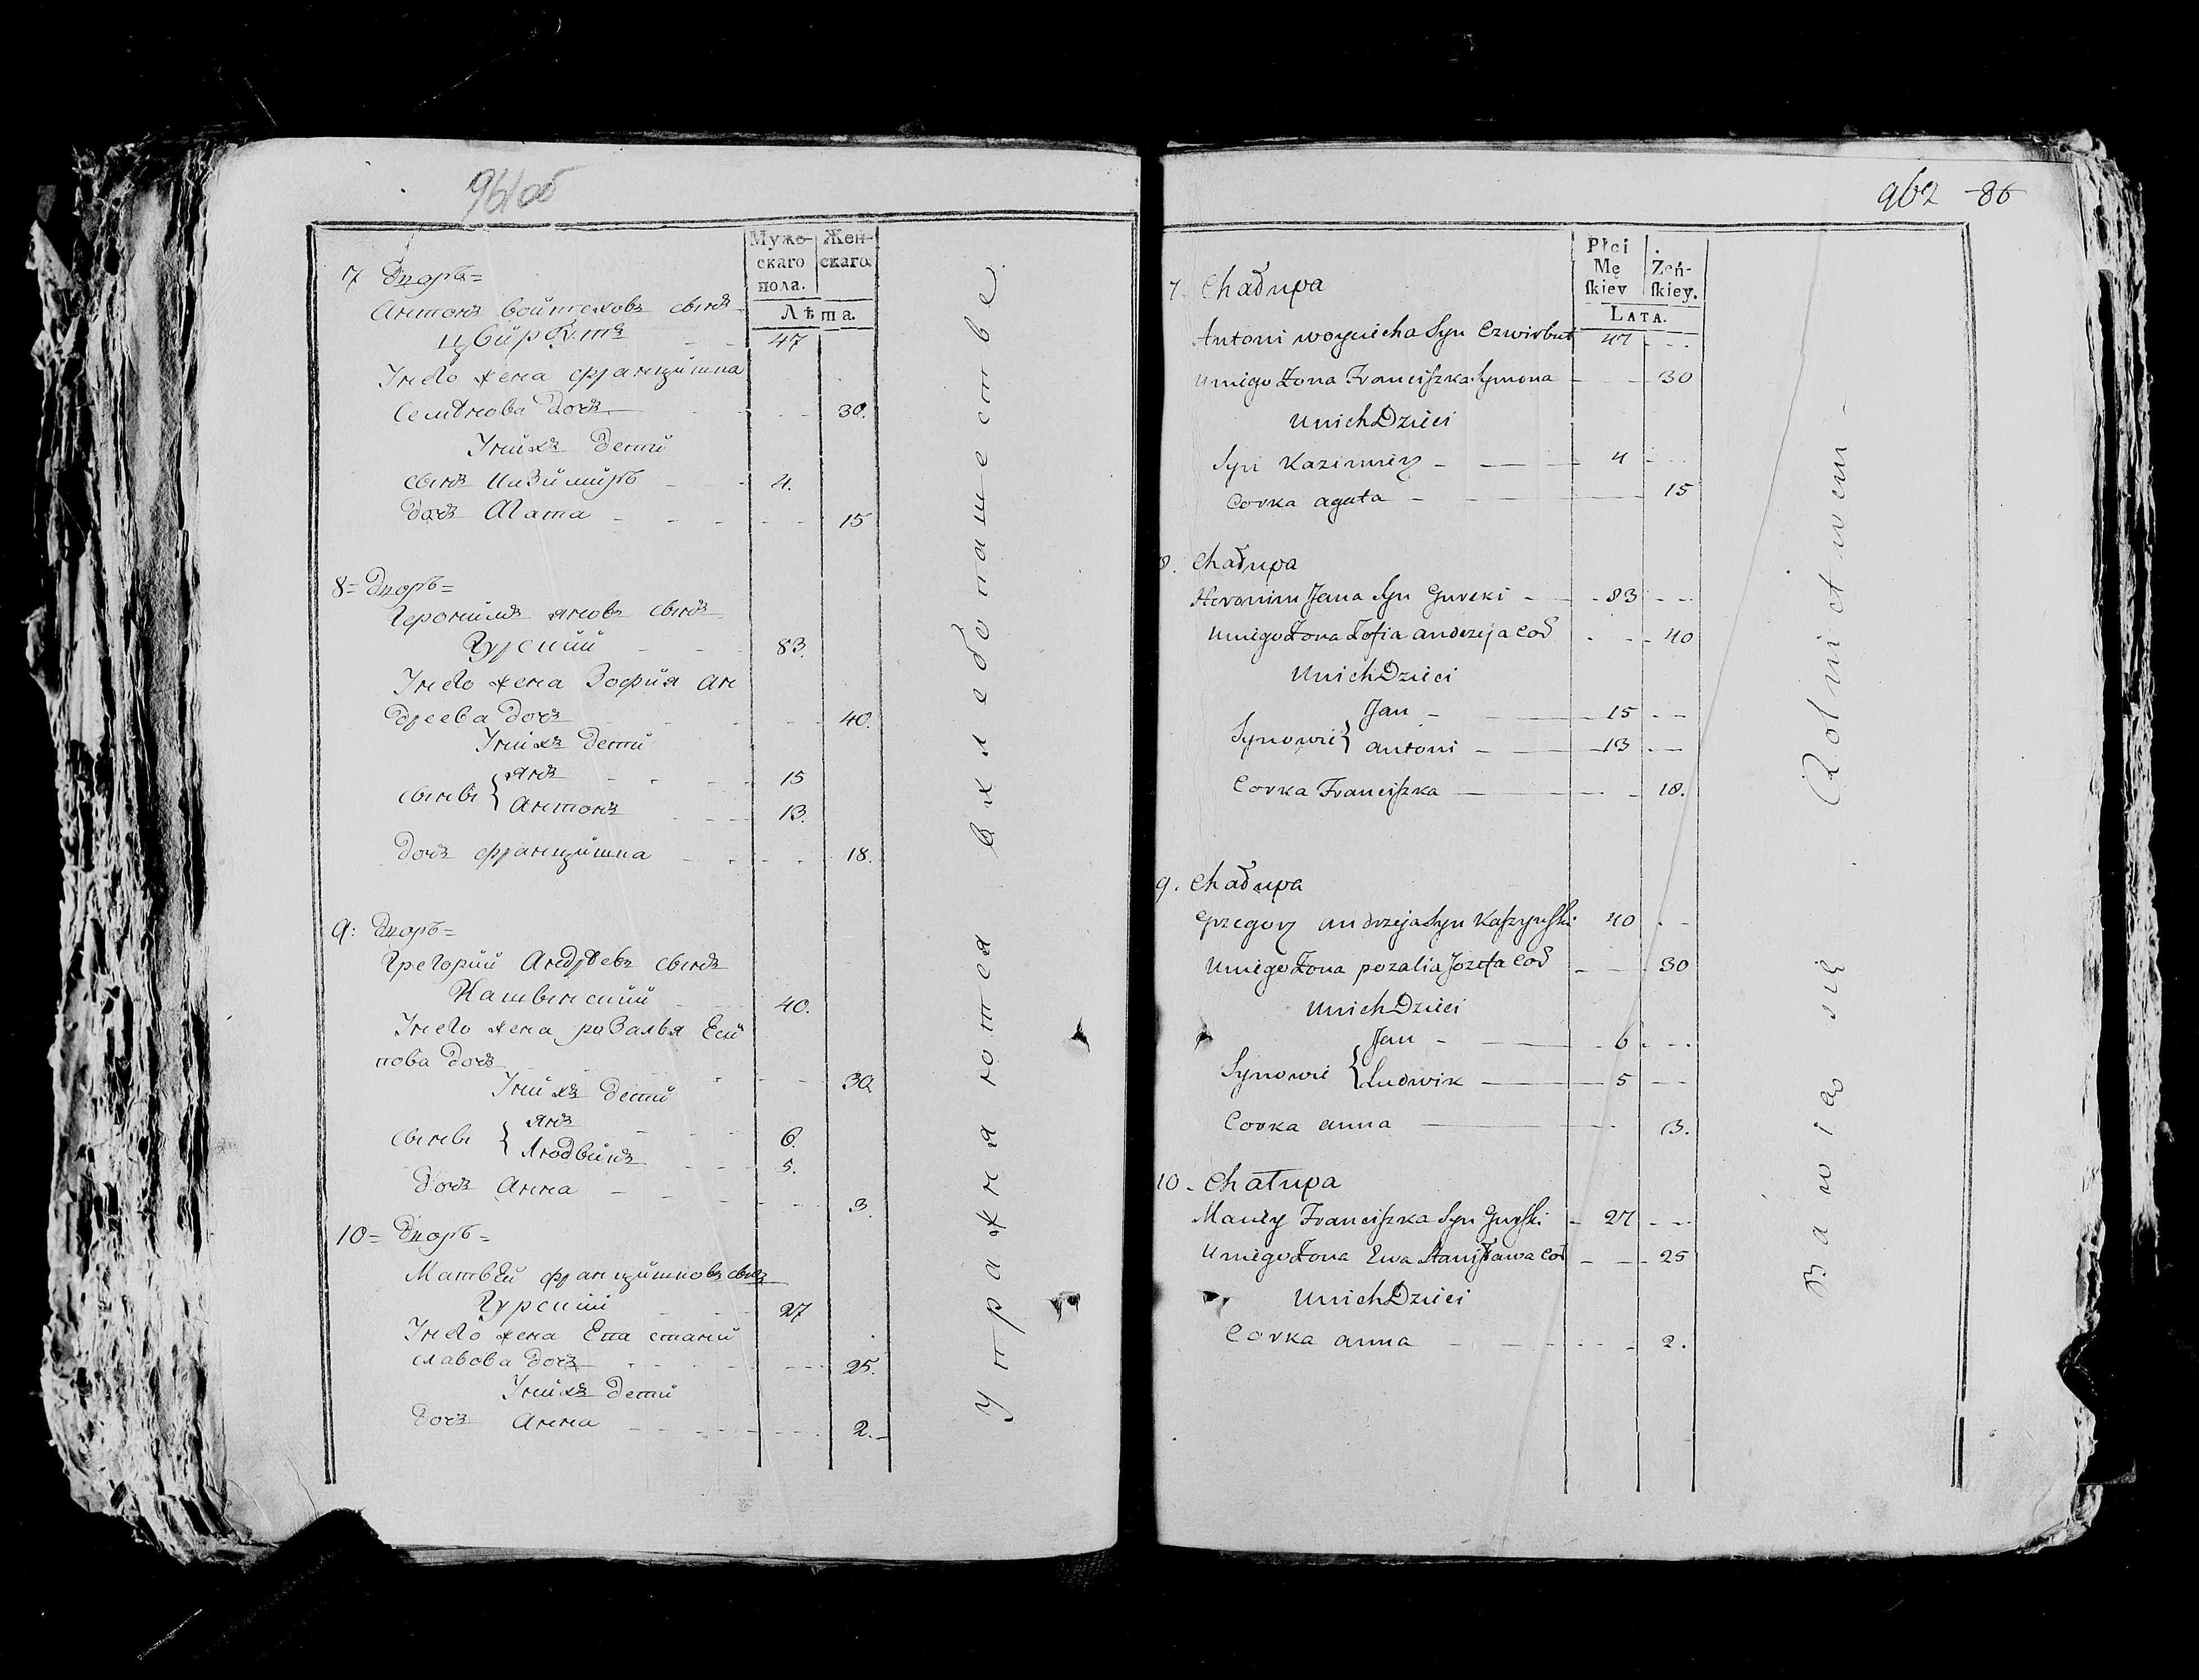 961об
Муже-
скаго
пола.
Жен-
скаго.
Лѣта.
7 Дворъ=
Антонъ войтеховъ сынъ
цвирбутъ - - 47
Унего жена францишка
Семїонова дочь - - 30.
Унихъ дети
сынъ Казимиръ - - 4.
дочь Агата - - - - - 15
8= Дворъ=
Геронимъ яновъ сынъ
Гурский - - 83.
Унего жена Зофия Ан
дреева дочь - - 40.
Унихъ дети
сыны { янъ - - - 15
Антонъ - - - 13.
дочь францишка - - - - 18.
9: Дворъ=
Грегорий Андрѣевъ сынъ
Кашынский - - 40.
Унего жена розалья Еси
пова дочь - - - 30
Унихъ дети
сыны { янъ - - - 6.
Людвикъ - - - 5.
дочь Анна - - - - - 3.
10= Дворъ=
Матвѣй францишковъ сынъ
Гурский - - 27
Унего жена Ева стани
славова дочь - - - - 25.
Унихъ дети
дочь Анна - - - - - 2.-
упражняются вхлебопашестве
962 86
Płci
Mę
ſkiey
Zeń-
ſkiey.
LATA.
7. Chałupa
Antoni woyciecha Syn Czwirbut 47 - - -
Uniego Żona Franciſzka Symona - - - 30
Unich Dzieci
Syn Kazimierz - - - 4 - - -
Corka agata - - - 15
8. Chałupa
Heronim Jana Syn Gurski - - 83 - -
Uniego Żona Zofia andrzeja Cod - - - 40
Unich Dzieci
Synowie { Jan - - - 15 - -
antoni - - - 13 - -
Corka Franciſzka - - - 18.
9. Chałupa
Grzegorz andrzeja Syn Kaſzynſki 40 - -
Uniego Żona rozalia Jozefa Cod - - - 30
Unich Dzieci
Synowie { Jan - - - 6 - - -
Ludwik - - - 5 - -
Corka anna - - - 3.
10. Chałupa
Maciey Franciſzka Syn Gurſki - 27 - - -
Uniego Żona Ewa Staniſława Cod - - - 25
Unich Dzieci
Corka anna - - - - 2.
Bawią się Rolnictwem